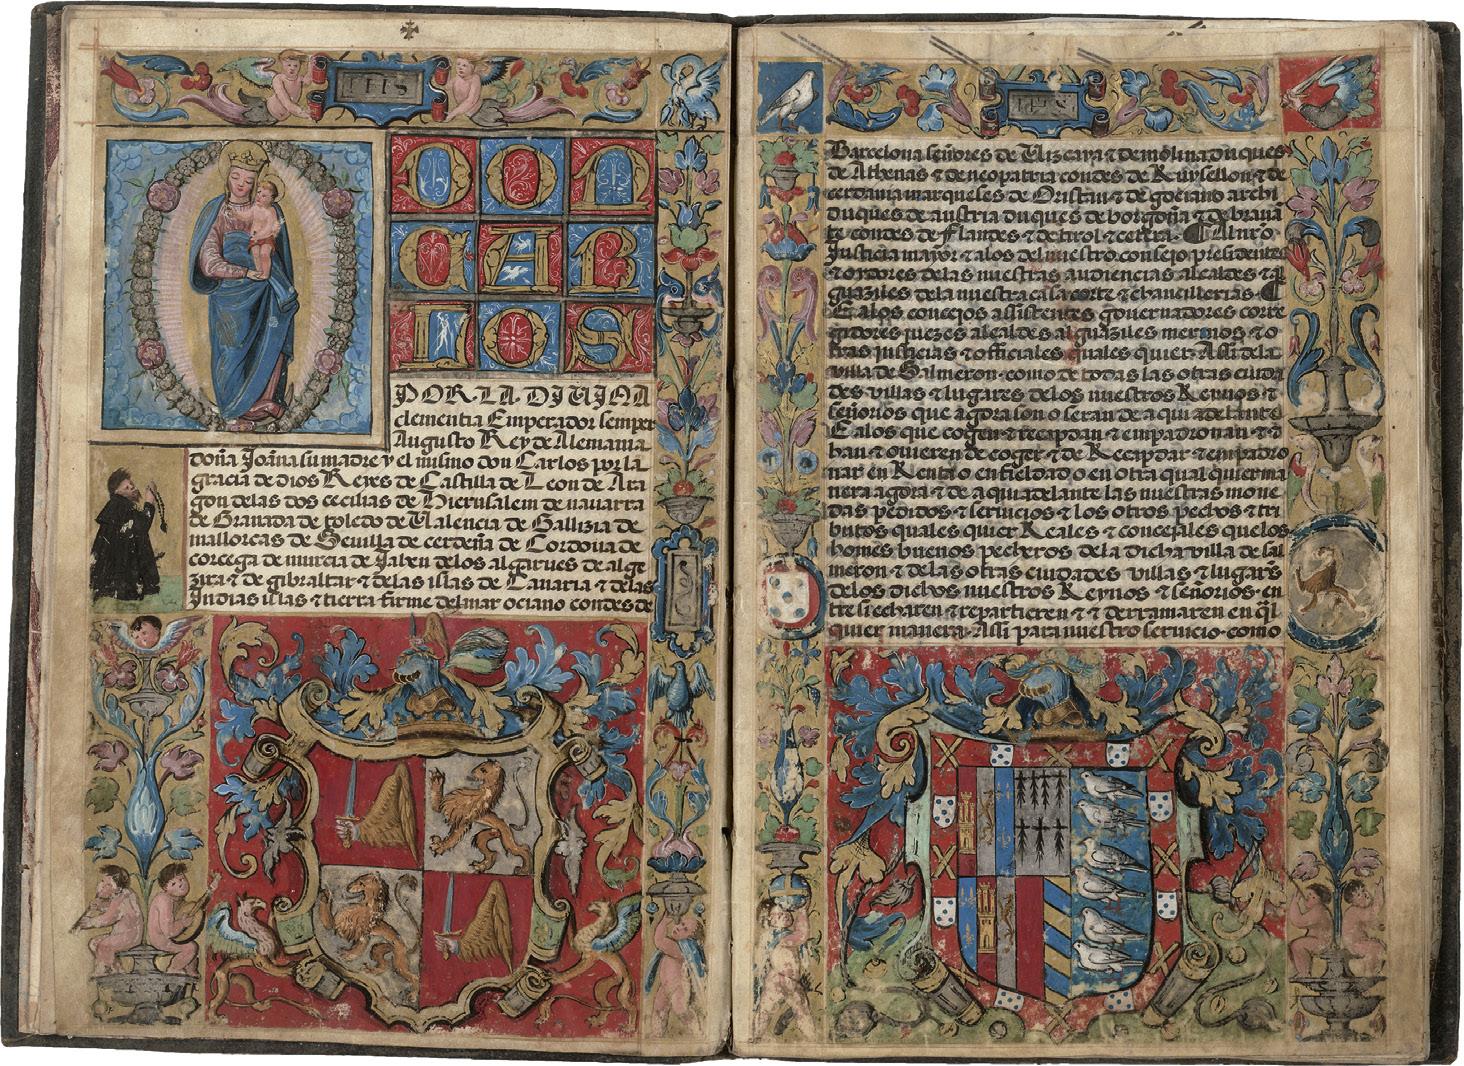 IHS
DON
CAR
LOS
POR LA DIVINA
clementia Emperador semper
Augusto Rey de Alemania
doña Joana su madre y el mismo don Carlos por la
gracia de dios Reyes de Castilla de Leon de Ara
gon de las dos cecilias de Hierusalem de navarra
de Granada de toledo de Valencia de Gallizia de
mallorcas de Sevilla de cerdeña de Cordova de
corcega de murcia de Jahen de los algarves de alge
zira ⁊ de gibraltar ⁊ de las islas de Canaria ⁊ de las
Indias islas ⁊ tierra firme del mar oceano condes de
IHS
Barcelona señores de Vizcaya ⁊ de molina duques
de Athenas ⁊ de neopatria condes de Ruysellon ⁊ de
cerdania marqueses de Oristan ⁊ de gociano archi
duques de austria duques de borgoña ⁊ de bravā
te condes de flandes ⁊ de tirol ⁊ cetera. Al nro
Justicia mayor ⁊ a los del nuestro consejo presidentes
⁊ oydores de las nuestras audiencias alcaldes ⁊ al
guaziles de la nuestra casa corte ⁊ chancillerias.
E a los concejos assistentes governadores corre
gidores juezes alcaldes alguaziles merinos ⁊ o
tras justicias ⁊ officiales quales quier. Assi de la
villa de Salmeron. como de todas las otras ciuda
des villas ⁊ lugares de los nuestros Reynos ⁊
señorios que agora son o seran de aqui adelante
E a los que cogen ⁊ recapdan ⁊ empadronan ⁊ ⁊
han ⁊ ovieren de coger ⁊ de Recapdar ⁊ empadro
nar en Renta o en fieldad o en otra qual quier ma
nera agora ⁊ de aqui adelante las nuestras mone
das pedidos ⁊ servicios ⁊ los otros pechos ⁊ tri
butos quales quier Reales ⁊ concejales que los
homes buenos pecheros de la dicha villa de sal
meron ⁊ de las otras ciudades villas ⁊ lugares
de los dichos nuestros Reynos ⁊ señorios. en
tre si echaren ⁊ repartieren ⁊ ⁊ derramaren en q̄l
quier manera. Assi para nuestro servicio. como